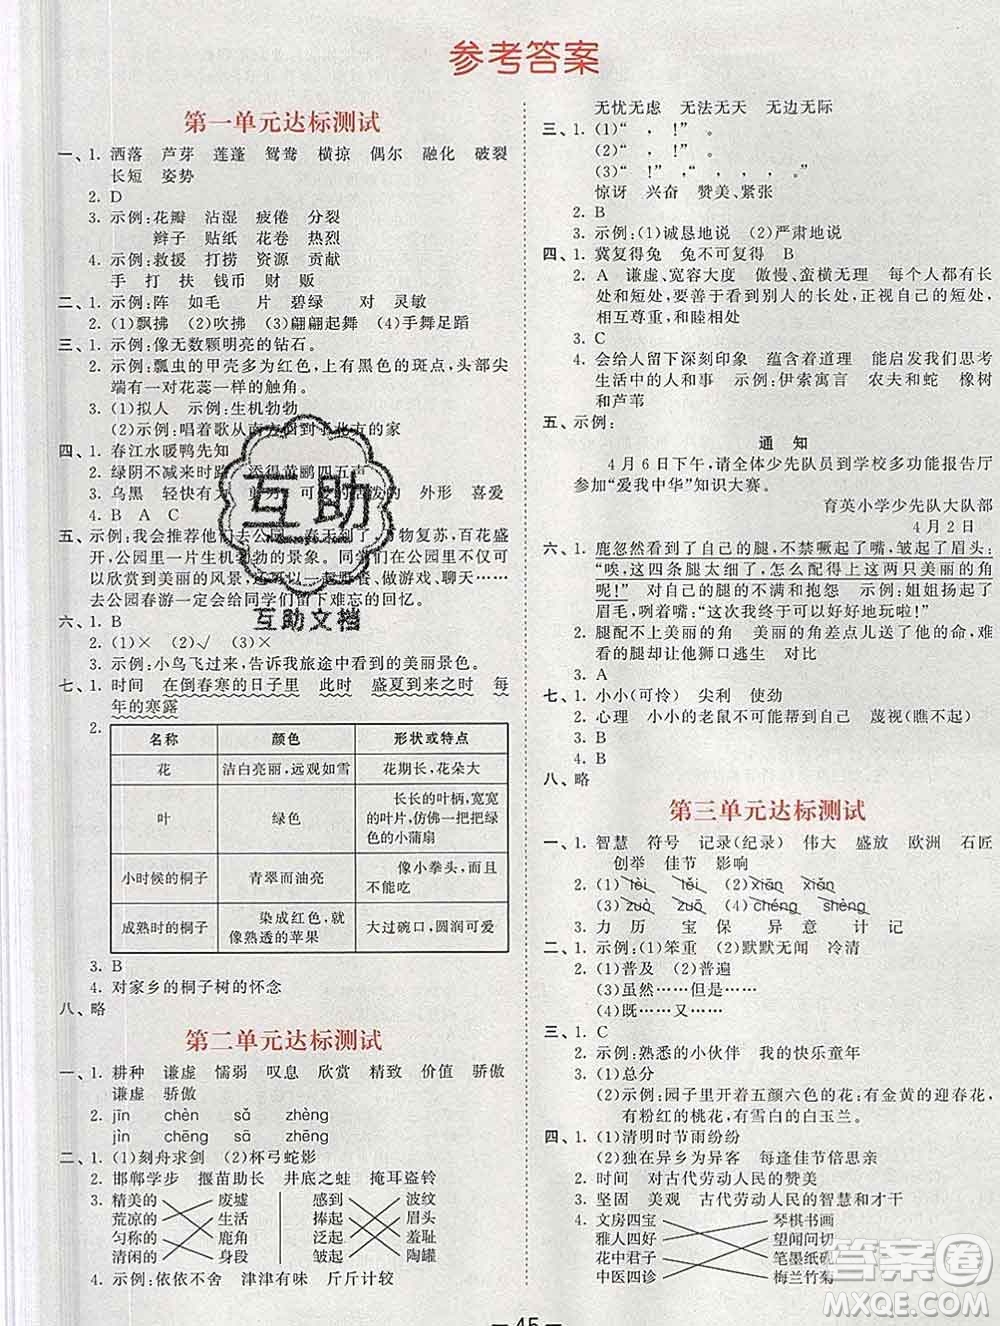 参考答案
第一单元达标测试
一、1. 洒落 芦芽 莲蓬 鸳鸯 横掠 偶尔 融化 破裂
长短 姿势
2. D
3. 示例:花瓣 沾湿 疲倦 分裂
辫子 贴纸 花卷 热烈
4. 示例:救援 打捞 资源 贡献
手 打 扶 钱币 财 贩
二、1. 示例:阵 如毛 片 碧绿 对 灵敏
2. (1)飘拂 (2)吹拂 (3)翩翩起舞 (4)手舞足蹈
三、1. 示例:像无数颗明亮的钻石。
2. 示例:瓢虫的甲壳多为红色,上有黑色的斑点,头部尖
端有一对花蕊一样的触角。
3. (1)拟人 示例:生机勃勃
(2)示例:唱着歌从南方回到了北方的家
四、1. 春江水暖鸭先知
2. 绿阴不减来时路 添得黄鹂四五声
3. 乌黑 轻快有力 剪刀 活泼的 外形 喜爱
4. B A C
五、示例:我会推荐他们去公园。春天到了,万物复苏,百花盛
开,公园里一片生机勃勃的景象。同学们在公园里不仅可
以欣赏到美丽的风景,还可以一起野餐、做游戏、聊天……
去公园春游一定会给同学们留下难忘的回忆。
六、1. B
2. (1)× (2)√ (3)×
3. 示例:小鸟飞过来,告诉我旅途中看到的美丽景色。
七、1. 时间 在倒春寒的日子里 此时 盛夏到来之时 每
年的寒露
2.
名称 颜色 形状或特点
花 洁白亮丽,远观如雪 花期长,花朵大
叶 绿色 长长的叶柄,宽宽
的叶片,仿佛一把把绿
色的小蒲扇
小时候的桐子 青翠而油亮 像小拳头,而且
不能吃
成熟时的桐子 染成红色,就
像熟透的苹果 大过碗口,圆润可爱
3. B
4. 对家乡的桐子树的怀念
八、略
第二单元达标测试
一、1. 耕种 谦虚 懦弱 叹息 欣赏 精致 价值 骄傲
谦虚 骄傲
2. jīn chèn sǎ zhèng
jìn chēng sā zhēng
二、1. (1)刻舟求剑 (2)杯弓蛇影
2. 邯郸学步 揠苗助长 井底之蛙 掩耳盗铃
3. 精美的 废墟 感到 波纹
荒凉的 生活 捧起 眉头
匀称的 鹿角 泛起 羞耻
清闲的 身段 皱起 陶罐
4. 示例:依依不舍 津津有味 斤斤计较
无忧无虑 无法无天 无边无际
三、1. (1)“ , !” 。
(2)“ , !” 。
(3)“ !” ,“ , 。”
惊讶 兴奋 赞美、紧张
2. B
3. 示例:(1)诚恳地说 (2)严肃地说
四、1. 冀复得兔 兔不可复得 B
2. A 谦虚、宽容大度 傲慢、蛮横无理 每个人都有长
处和短处,要善于看到别人的长处,正视自己的短处,
相互尊重,和睦相处
3. C
4. 会给人留下深刻印象 蕴含着道理 能启发我们思考
生活中的人和事 示例:伊索寓言 农夫和蛇 橡树
和芦苇
五、示例:
通 知
4月6日下午,请全体少先队员到学校多功能报告厅
参加“爱我中华”知识大赛。
育英小学少先队大队部
4月2日
六、1. 鹿忽然看到了自己的腿,不禁噘起了嘴,皱起了眉头:
“唉,这四条腿太细了,怎么配得上这两只美丽的角
呢!” 对自己的腿的不满和抱怨 示例:姐姐扬起了
眉毛,努着嘴:“这次我终于可以好好地玩啦!”
2. 腿配不上美丽的角 美丽的角差点儿送了他的命,难
看的腿却让他狮口逃生 对比
3. A
七、1. 小小(可怜) 尖利 使劲
2. 心理 小小的老鼠不可能帮到自己 蔑视(瞧不起)
3. B
4. B
八、略
第三单元达标测试
一、1. 智慧 符号 记录(纪录) 伟大 盛放 欧洲 石匠
创举 佳节 影响
2. (1)lèi lěi (2)xiān xiǎn
(3)zuò zuō (4)chéng shèng
3. 力 历 宝 保 异 意 计 记
二、1. 示例:(1)笨重 (2)默默无闻 冷清
2. (1)普及 (2)普遍
(3)虽然……但是……
(4)既……又……
三、1. C
2. 示例:熟悉的小伙伴 我的快乐童年
3. (1)总分
(2)示例:园子里开着五颜六色的花:有金黄的迎春花,
有粉红的桃花,有雪白的白玉兰。
四、1. (1)清明时节雨纷纷
(2)独在异乡为异客 每逢佳节倍思亲
2. 时间 对古代劳动人民的赞美
3. 坚固 美观 古代劳动人民的智慧和才干
4. 文房四宝 琴棋书画
雅人四好 望闻问切
花中君子 笔墨纸砚
中医四诊 梅兰竹菊
— 45 —
互助
互助文档
答案圈
MXQE.COM